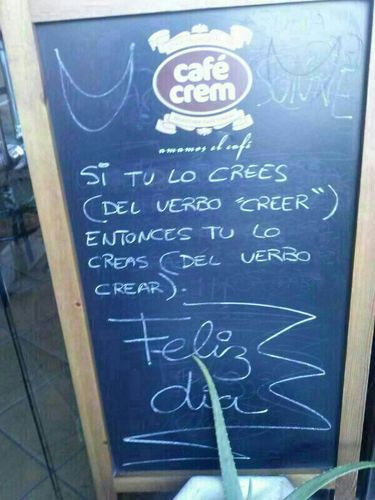 café
crem
amamos el café
SI TU LO CREES
(DEL VERBO "CREER")
ENTONCES TU LO
CREAS (DEL VERBO
CREAR).
Feliz
día